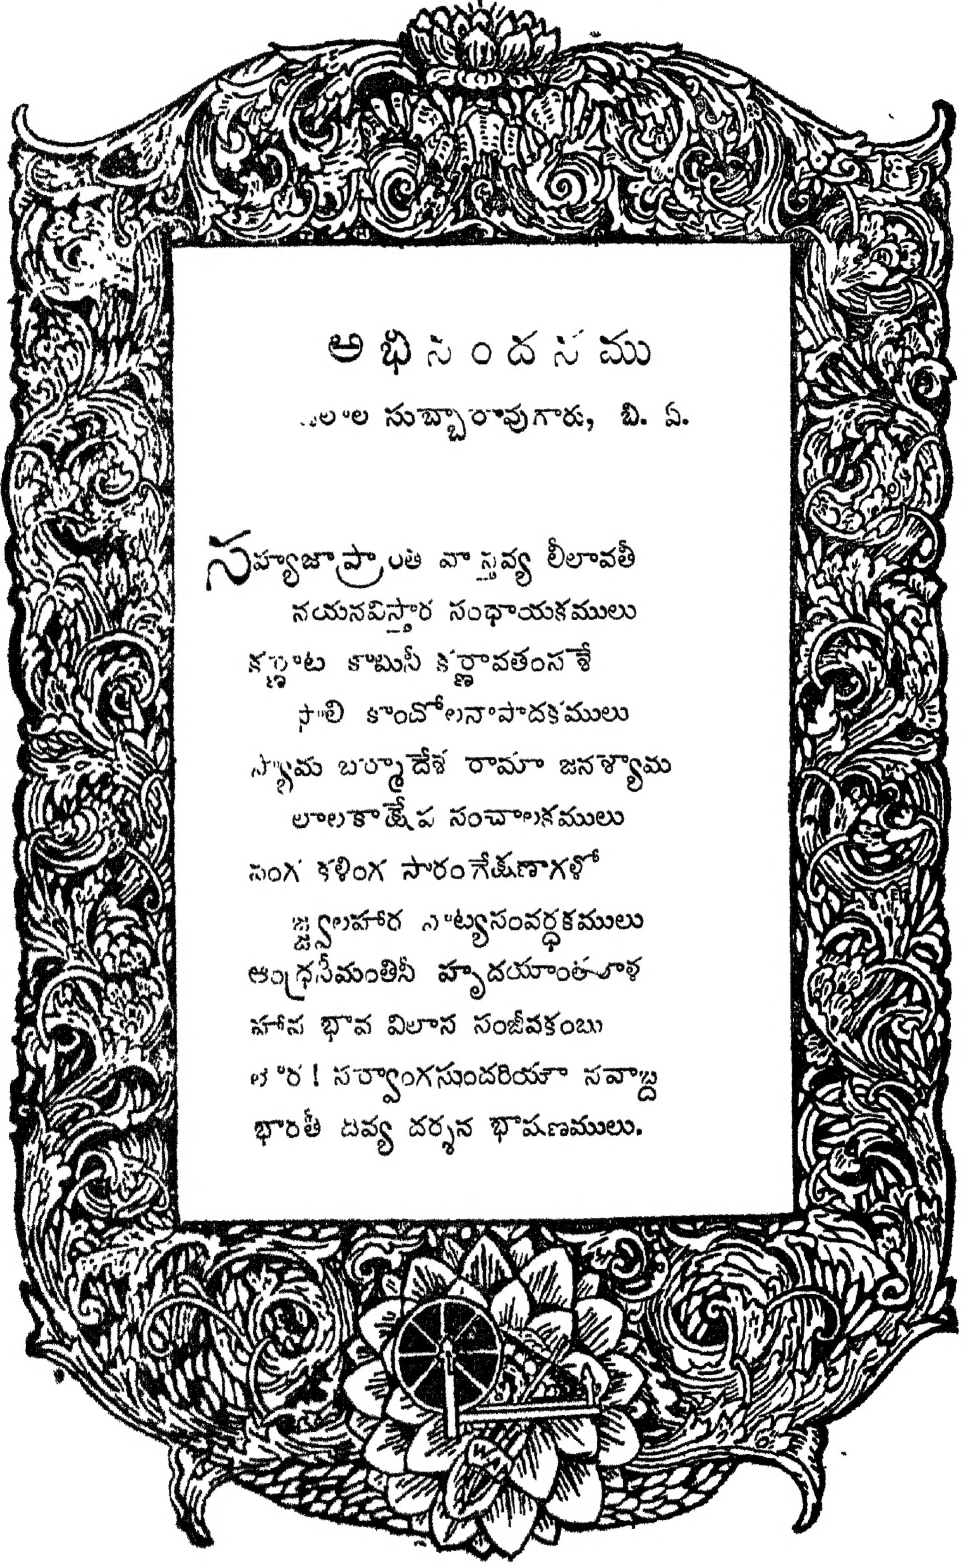 అభినందనము
సుబ్బారావుగారు, బి. ఏ.
సహ్యజాప్రాంత వాస్తవ్య లీలావతీ
నయనవిస్తార సంధాయకములు
కర్ణాట కాటుసీ కర్ణావతంసశే
కాందోలనాపాదకములు
బర్మాదేశ రామా జనశ్యామ
లాలకాక్షేప సంచాలకములు
కళింగ సారంగేక్షణాగళో
జ్జ్వలహార నాట్యసంవర్ధకములు
ఆంధ్రసీమంతినీ హృదయాంతరాళ
హాస భావ విలాస సంజీవకంబు
సర్వాంగసుందరియౌ నవాబ్ద
భారతీ దివ్య దర్శన భాషణములు.